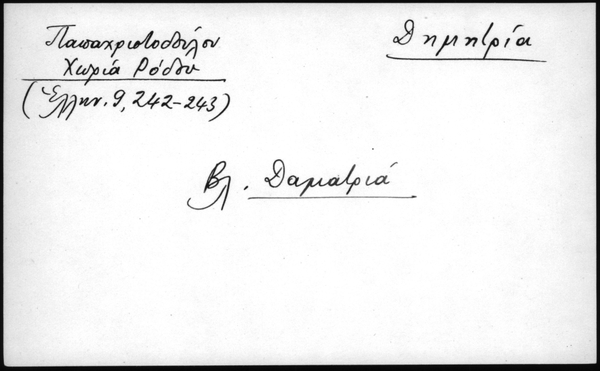 Παπαχριστοδούλου
Χωριά Ρόδου
(Ἑλλην. 9, 242-243)
Δημητρία
Βλ. Δαματριά